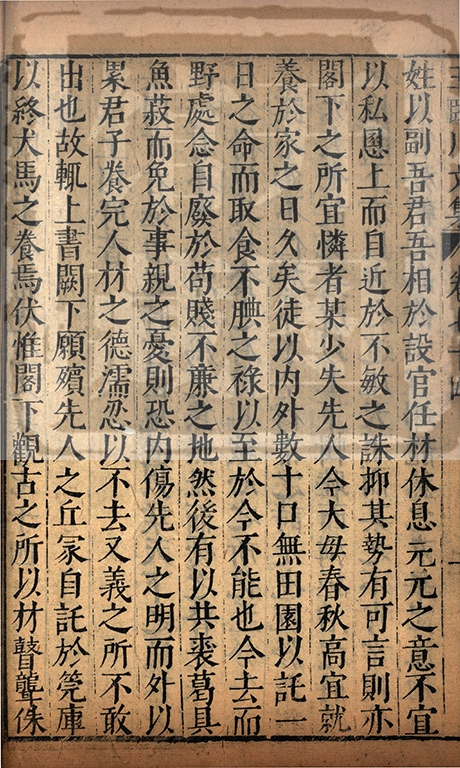 王臨川文集 卷七十四 一
姓以副吾君吾相於設官任材休息元元之意不宜
以私恩上而自近於不敏之誅抑其勢有可言則亦
閤下之所宜憐者某少失先人今大母春秋高宜就
養於家之日久矣徒以内外數十口無田園以託一
日之命而取食不腆之祿以至於今不能也今去而
野處念自廢於苟賤不廉之地然後有以共裘葛具
魚菽而免於事親之憂則恐内傷先人之明而外以
累君子養完人材之德濡忍以不去又義之所不敢
出也故輒上書闕下願殯先人之丘冢自託於筦庫
以終犬馬之養焉伏惟閤下觀古之所以材瞽聾侏